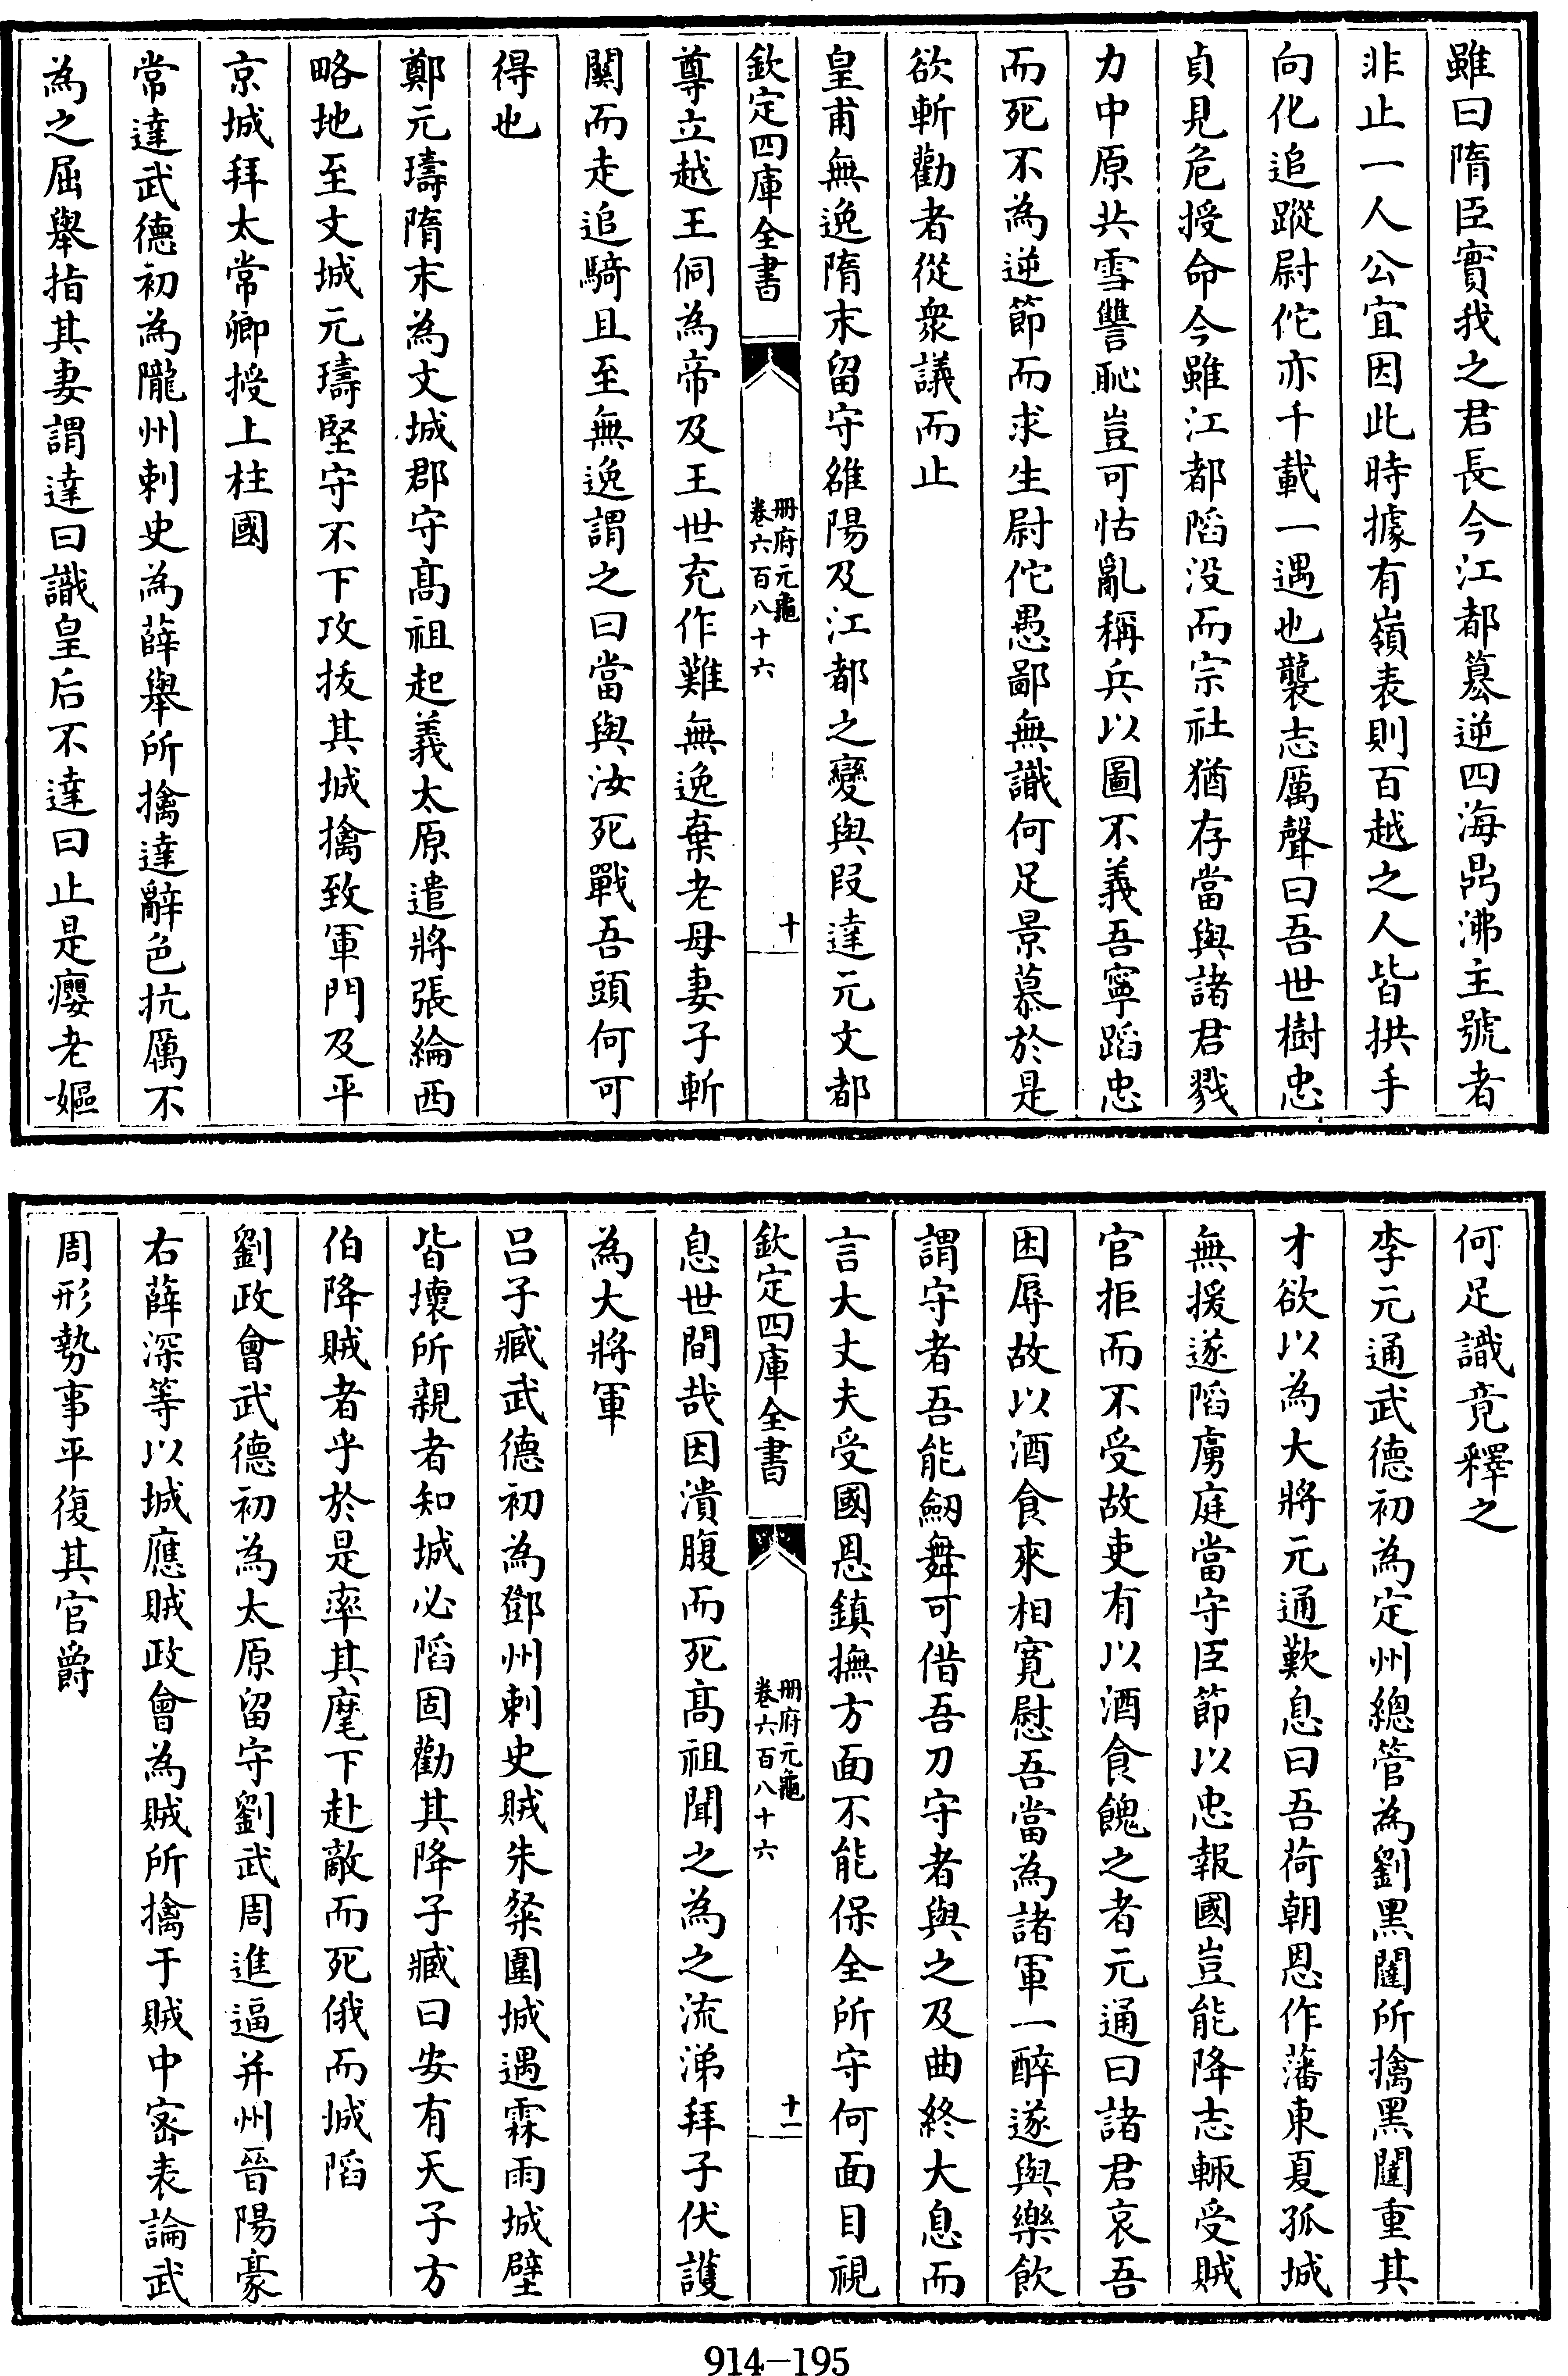 雖曰隋臣實我之君長今江都簒逆四海鼎沸主號者
非止一人公宜因此時據有嶺表則百越之人皆拱手
向化追蹤尉佗亦千載一遇也襲志厲聲曰吾世樹忠
貞見危授命今雖江都陷没而宗社猶存當與諸君戮
力中原共雪讐恥豈可怙亂稱兵以圖不義吾寧蹈忠
而死不為逆節而求生尉佗愚鄙無識何足景慕於是
欲斬勸者從衆議而止
皇甫無逸隋末留守雒陽及江都之變與段達元文都
欽定四庫全書
冊府元龜
卷六百八十六
十
尊立越王侗為帝及王世充作難無逸棄老母妻子斬
關而走追騎且至無逸謂之曰當與汝死戰吾頭何可
得也
鄭元璹隋末為文城郡守髙祖起義太原遣將張綸西
略地至文城元璹堅守不下攻拔其城擒致軍門及平
京城拜太常卿授上柱國
常達武德初為隴州刺史為薛舉所擒達辭色抗厲不
為之屈舉指其妻謂達曰識皇后不達曰止是癭老嫗
何足識竟釋之
李元通武德初為定州總管為劉黑闥所擒黑闥重其
才欲以為大將元通歎息曰吾荷朝恩作藩東夏孤城
無援遂陷虜庭當守臣節以忠報國豈能降志輙受賊
官拒而不受故吏有以酒食餽之者元通曰諸君哀吾
困辱故以酒食來相寛慰吾當為諸軍一醉遂與樂飲
謂守者吾能劒舞可借吾刀守者與之及曲終大息而
言大丈夫受國恩鎮撫方面不能保全所守何面目視
欽定四庫全書
冊府元龜
卷六百八十六
十一
息世間哉因潰腹而死髙祖聞之為之流涕拜子伏護
為大將軍
吕子臧武德初為鄧州刺史賊朱粲圍城遇霖雨城壁
皆壞所親者知城必陷固勸其降子臧曰安有天子方
伯降賊者乎於是率其麾下赴敵而死俄而城陷
劉政會武德初為太原留守劉武周進逼并州晉陽豪
右薛深等以城應賊政會為賊所擒于賊中宻表論武
周形勢事平復其官爵
914—195